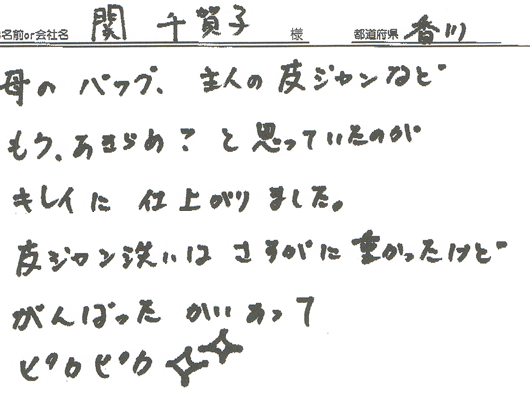 お名前or会社名 関 千賀子 様 都道府県 香川
母の バッグ、主人の 皮ジャンなど
もう、あきらめ？と思っていたのが
キレイに 仕上がりました。
皮ジャン洗いは さすがに重かったけど
がんばった かいあって
ピカピカ